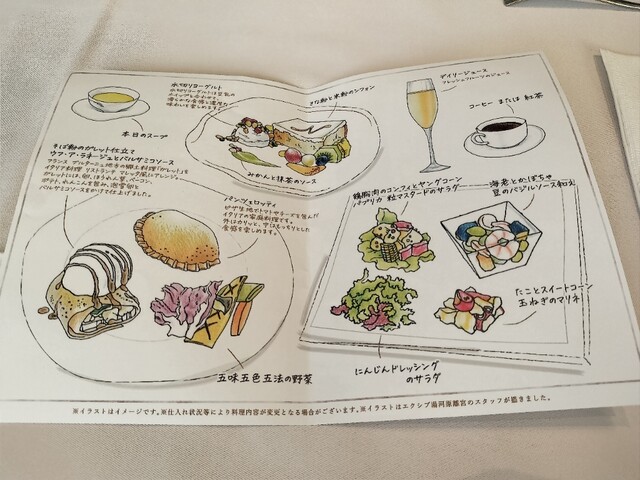 水切りヨーグルト
本日のスープ
きな粉と米粉のシフォン
みかんと抹茶のソース
デイリージュース
フレッシュフルーツのジュース
コーヒー または 紅茶
そば粉のガレット仕立て
ウフ・ア・ラ・ネージュとバルサミコソース
バルサミコソースをかけて仕上げました。
パンツェロッティ
イタリアの家庭料理です。
食感を楽しめます。
五味五色五法の野菜
鶏胸肉のコンフィとヤングコーン
パプリカ 粒マスタードのサラダ
海老とかぼちゃ
豆のバジルソース和え
たことスイートコーン
玉ねぎのマリネ
にんじんドレッシング
のサラダ
※イラストはイメージです。※仕入れ状況等により料理内容が変更となる場合がございます。※イラストはエクシブ湯河原離宮のスタッフが描きました。